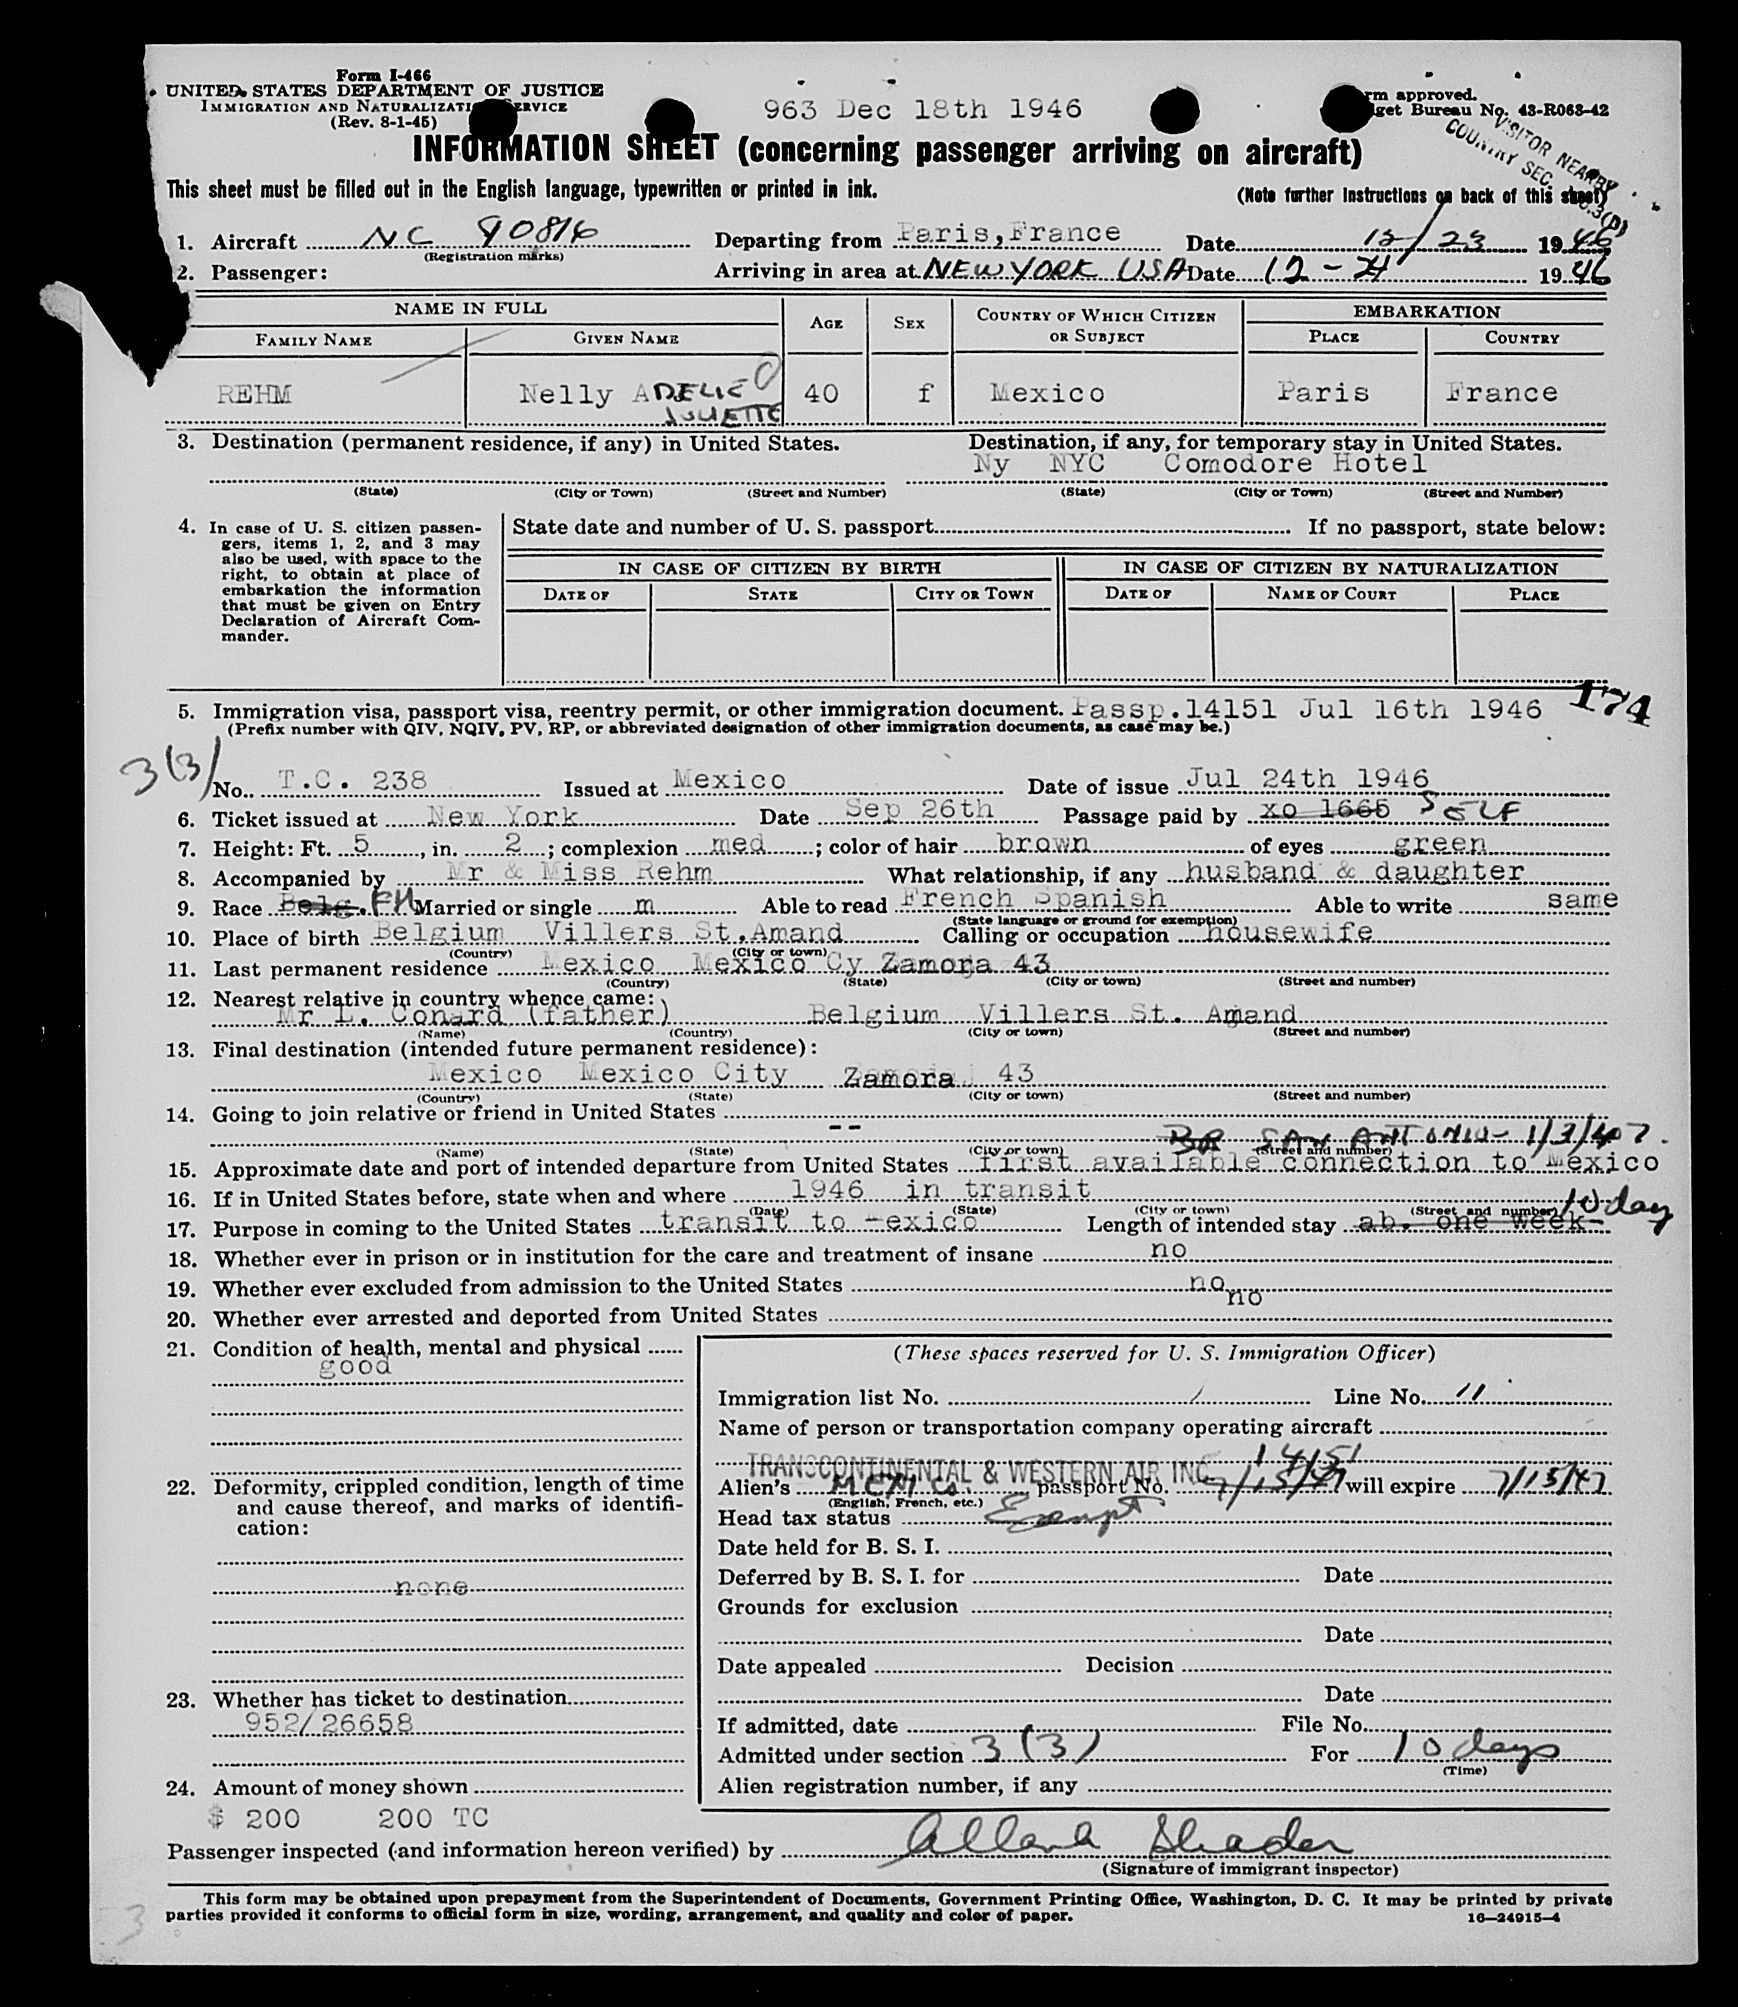 Form I-466
UNITED STATES DEPARTMENT OF JUSTICE
IMMIGRATION AND NATURALIZATION SERVICE
(Rev. 8-1-45)
963 Dec 18th 1946
rm approved.
get Bureau No. 43-R063-42
VISITOR NEARBY
COUNTRY SEC.
INFORMATION SHEET (concerning passenger arriving on aircraft)
This sheet must be filled out in the English language, typewritten or printed in ink. (Note further instructions on back of this sheet)
1. Aircraft NC 90816 Departing from Paris, France Date 12/23 1946
(Registration marks)
2. Passenger: Arriving in area at NEW YORK USA Date 12-24 1946
NAME IN FULL AGE SEX COUNTRY OF WHICH CITIZEN OR SUBJECT EMBARKATION
FAMILY NAME GIVEN NAME PLACE COUNTRY
REHM Nelly ADELIE 40 f Mexico Paris France
JULIETTE
3. Destination (permanent residence, if any) in United States. Destination, if any, for temporary stay in United States.
Ny NYC Comodore Hotel
(State) (City or Town) (Street and Number) (State) (City or Town) (Street and Number)
4. In case of U. S. citizen passen-
gers, items 1, 2, and 3 may
also be used, with space to the
right, to obtain at place of
embarkation the information
that must be given on Entry
Declaration of Aircraft Com-
mander.
State date and number of U. S. passport If no passport, state below:
IN CASE OF CITIZEN BY BIRTH IN CASE OF CITIZEN BY NATURALIZATION
DATE OF STATE CITY OR TOWN DATE OF NAME OF COURT PLACE
174
5. Immigration visa, passport visa, reentry permit, or other immigration document. Passp.14151 Jul 16th 1946
(Prefix number with QIV, NQIV, PV, RP, or abbreviated designation of other immigration documents, as case may be.)
3(3)
No. T.C. 238 Issued at Mexico Date of issue Jul 24th 1946
6. Ticket issued at New York Date Sep 26th Passage paid by xo 1665 SELF
7. Height: Ft. 5, in. 2; complexion med; color of hair brown of eyes green
8. Accompanied by Mr & Miss Rehm What relationship, if any husband & daughter
9. Race Belg. Married or single m Able to read French Spanish Able to write same
(State language or ground for exemption)
10. Place of birth Belgium Villers St.Amand Calling or occupation housewife
(Country) (City or town)
11. Last permanent residence Mexico Mexico Cy Zamora 43
(Country) (State) (City or town) (Street and number)
12. Nearest relative in country whence came:
Mr L. Conard (father) Belgium Villers St. Amand
(Name) (Country) (City or town) (Street and number)
13. Final destination (intended future permanent residence):
Mexico Mexico City Zamora 43
(Country) (State) (City or town) (Street and number)
14. Going to join relative or friend in United States
--
BR SAN ANTONIO- 1/3/47.
(Name) (State) (City or town) (Street and number)
15. Approximate date and port of intended departure from United States first available connection to Mexico
16. If in United States before, state when and where 1946 in transit
(Date) (State) (City or town) (Street and number)
10 day
17. Purpose in coming to the United States transit to Mexico Length of intended stay ab. one week
18. Whether ever in prison or in institution for the care and treatment of insane no
19. Whether ever excluded from admission to the United States no
20. Whether ever arrested and deported from United States no
21. Condition of health, mental and physical
good
22. Deformity, crippled condition, length of time
and cause thereof, and marks of identifi-
cation:
none
23. Whether has ticket to destination
952/26658
24. Amount of money shown
$ 200 200 TC
(These spaces reserved for U. S. Immigration Officer)
Immigration list No. 1 Line No. 11
Name of person or transportation company operating aircraft
TRANSCONTINENTAL & WESTERN AIR INC 14151
Alien's passport No. 7/15/47 will expire 7/15/47
(English, French, etc.)
Head tax status Exempt
Date held for B. S. I.
Deferred by B. S. I. for Date
Grounds for exclusion
Date
Date appealed Decision
Date
If admitted, date File No.
Admitted under section 3(3) For 10 days
(Time)
Alien registration number, if any
Passenger inspected (and information hereon verified) by
(Signature of immigrant inspector)
This form may be obtained upon prepayment from the Superintendent of Documents, Government Printing Office, Washington, D. C. It may be printed by private
parties provided it conforms to official form in size, wording, arrangement, and quality and color of paper. 16—24915-4
3